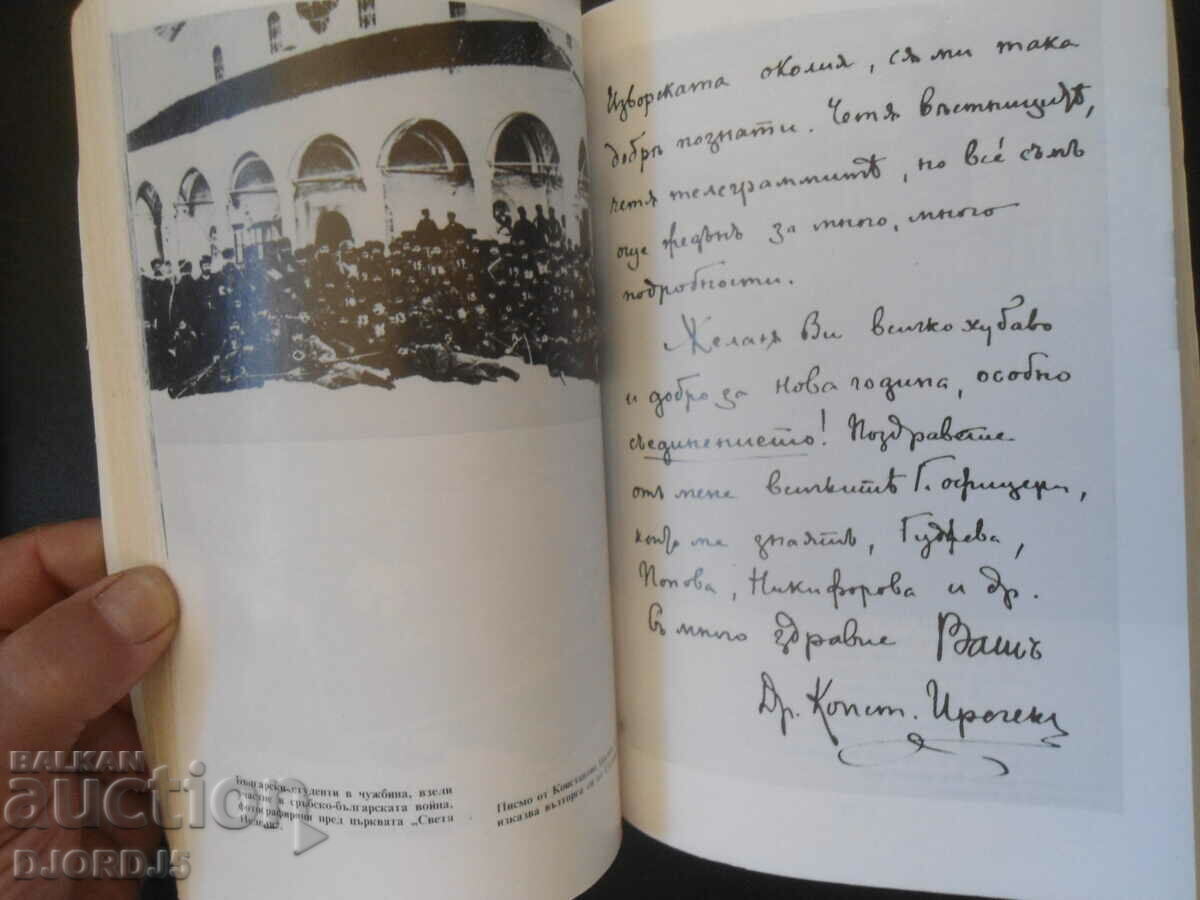 Български студенти в чужбина, взели
участие в сръбско-българската война,
фотографирани пред църквата „Света
Писмо от Константин
изказва възторга си от
Изворската околия, сѫ ми така
добрѣ познати. Четѫ вѣстницитѣ,
четѫ телеграммитѣ, но все съмъ
още жеденъ за много, много
подробности.
Желаѫ Ви всичко хубаво
и добро за нова година, особно
съединението! Поздравете
отъ мене всичкитѣ Г. офицери,
които ме знаятъ, Гуджева,
Попова, Никифорова и др.
Съ много здравие Вашъ
Др. Конст. Иречекъ
BALKAN
auction
DJORDJ5